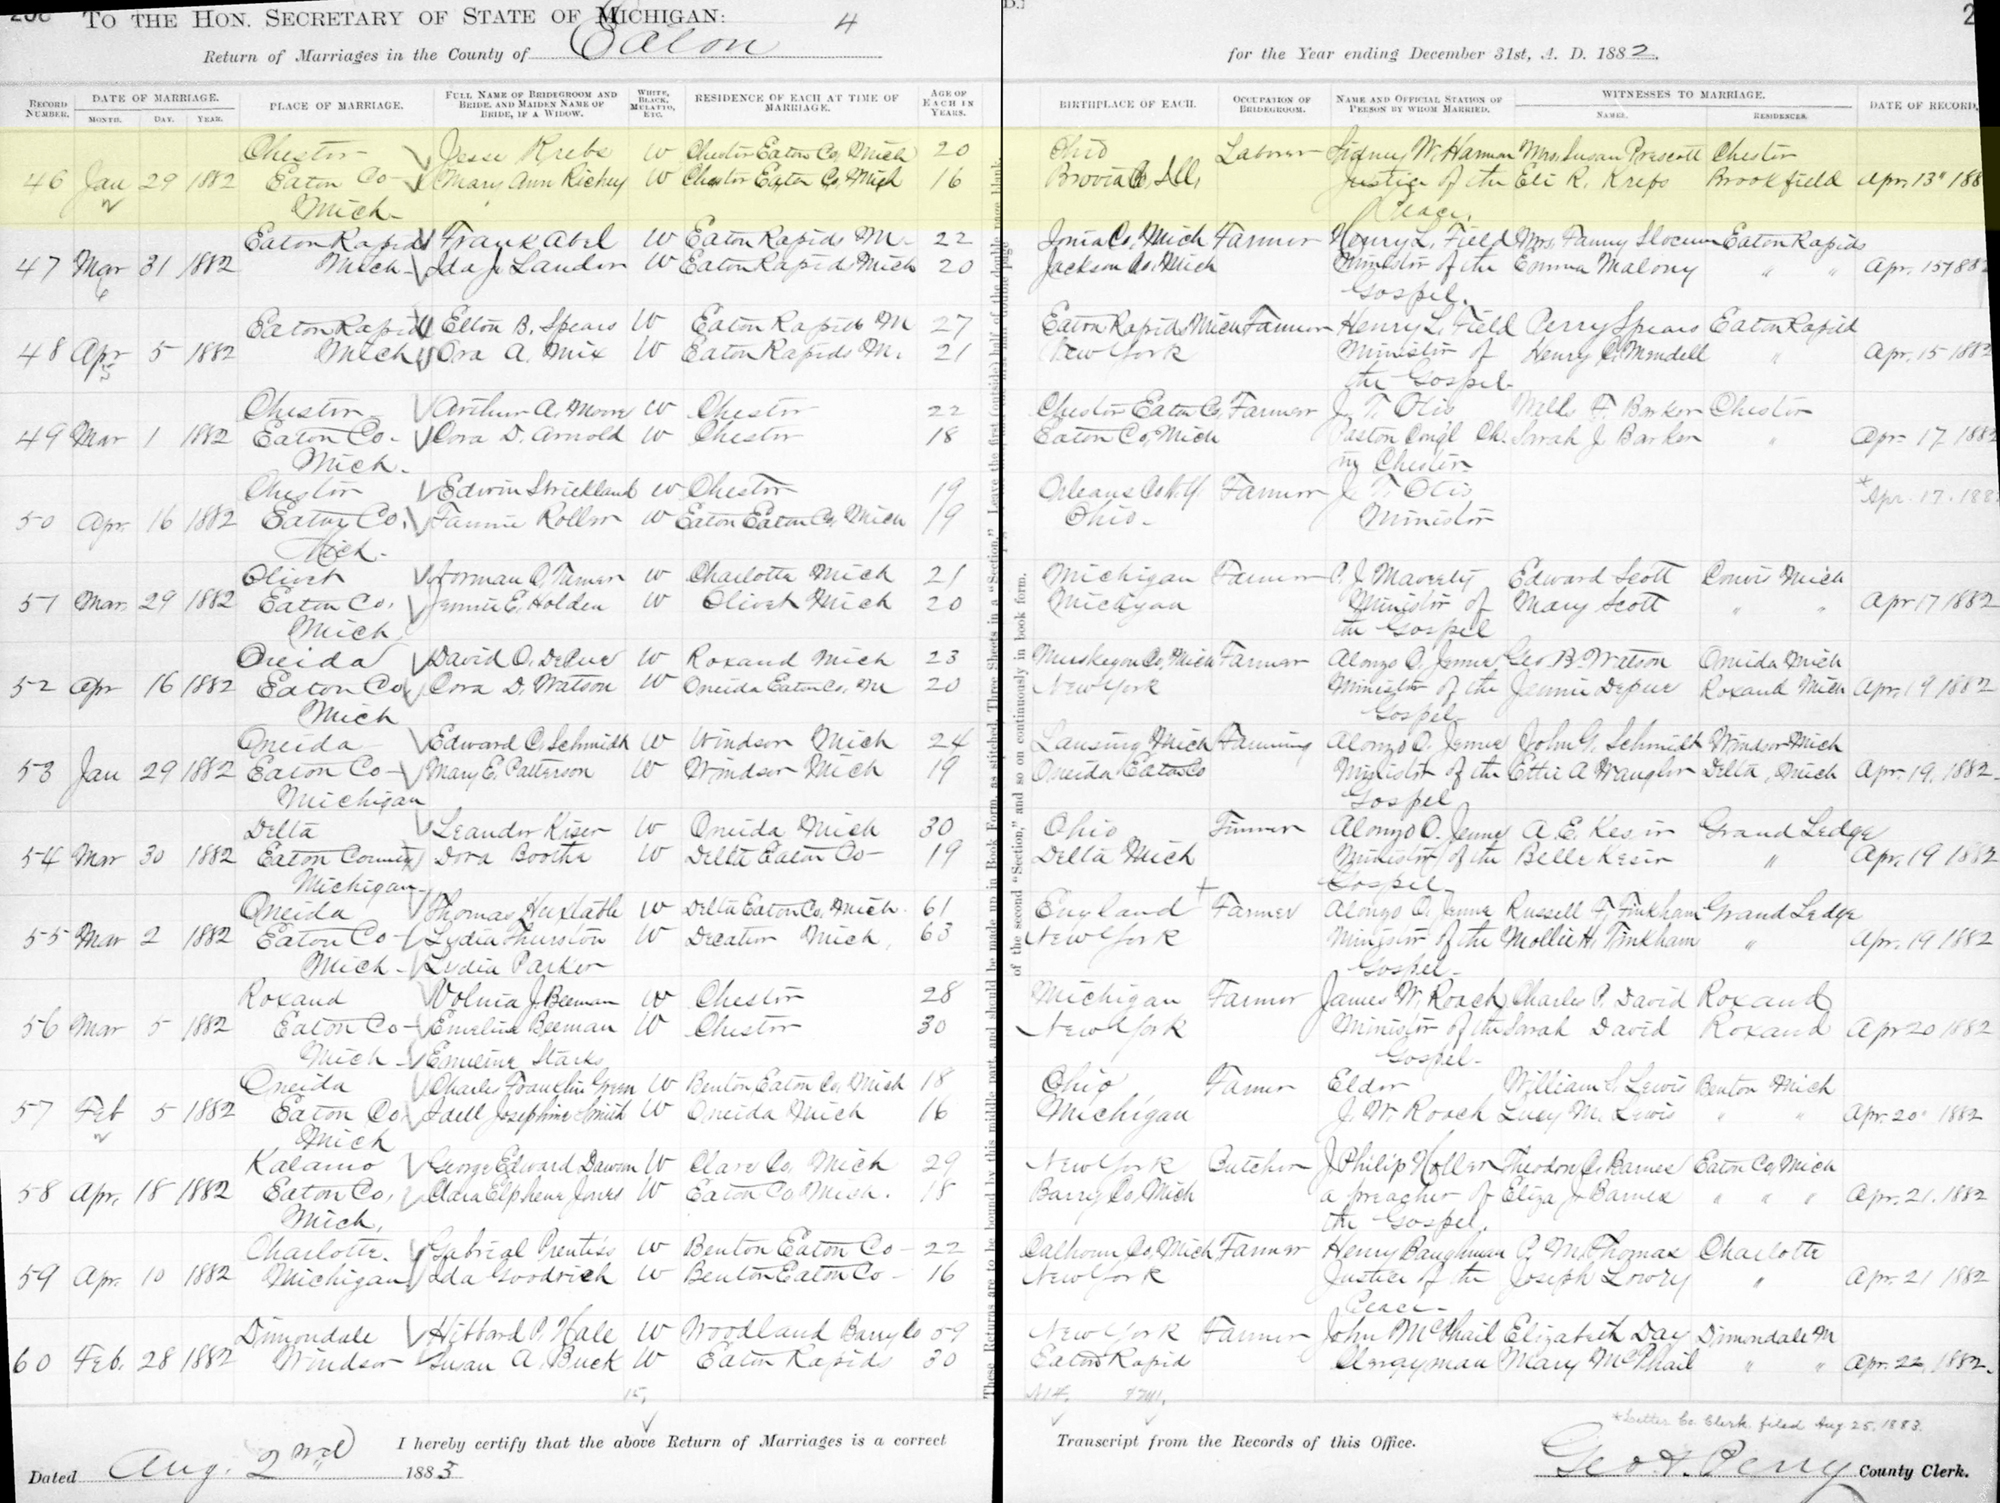 TO THE HON. SECRETARY OF STATE OF MICHIGAN: 4
Return of Marriages in the County of Eaton
for the Year ending December 31st, A. D. 1882.
RECORD NUMBER. DATE OF MARRIAGE. MONTH. DAY. YEAR. PLACE OF MARRIAGE. FULL NAME OF BRIDEGROOM AND BRIDE, AND MAIDEN NAME OF BRIDE, IF A WIDOW. WHITE, BLACK, MULATTO, ETC. RESIDENCE OF EACH AT TIME OF MARRIAGE. AGE OF EACH IN YEARS.
BIRTHPLACE OF EACH. OCCUPATION OF BRIDEGROOM. NAME AND OFFICIAL STATION OF PERSON BY WHOM MARRIED. WITNESSES TO MARRIAGE. NAMES. RESIDENCES. DATE OF RECORD.
Chester Jesse Krebs W Chester Eaton Co, Mich 20 Ohio Laborer Sidney W. Harmon Mrs. Susan Prescott Chester
46 Jan 29 1882 Eaton Co Mary Ann Richey W Chester Eaton Co, Mich 16 Ill, Justice of the Eli R. Krebs Brookfield Apr. 13" 188
Mich Peace.
Eaton Rapids Frank Abel W Eaton Rapids M 22 Ionia Co, Mich Farmer Henry L. Field Mrs. Fanny Slocum Eaton Rapids
47 Mar 31 1882 Mich Ida J. Landon W Eaton Rapids Mich 20 Jackson Co, Mich Minister of the Emma Malony " " Apr. 15 1882
6 Gospel.
Eaton Rapids Elton B. Spears W Eaton Rapids M 27 Eaton Rapids Mich Farmer Henry L. Field Perry Spears Eaton Rapid
48 Apr 5 1882 Mich Ora A. Mix W Eaton Rapids M. 21 New York Minister of Henry C. Mendell " Apr. 15 1882
5 the Gospel
Chester Arthur A. Moore W Chester 22 Chester Eaton Co, Farmer J. T. Otis Willi F. Barker Chester
49 Mar 1 1882 Eaton Co Cora D. Arnold W Chester 18 Eaton Co, Mich Pastor Cong'l Ch. Sarah J. Barker " Apr. 17 1882
Mich. in Chester
Chester Edwin Strickland W Chester 19 Orleans Co N.Y. Farmer J. T. Otis * Apr. 17. 188
50 Apr. 16 1882 Eaton Co, Fannie Roller W Eaton Eaton Co, Mich 19 Ohio. Minister
Mich.
Olivet Norman O. Turner W Charlotte Mich 21 Michigan Farmer P. J. Maveety Edward Scott Convis Mich
51 Mar. 29 1882 Eaton Co, Jennie E. Holden W Olivet Mich 20 Michigan Minister of Mary Scott " " Apr 17 1882
Mich the Gospel
Oneida David O. DePue W Roxand Mich 23 Muskegon Co, Mich Farmer Alonzo O. Jenne Geo B. Watson Oneida Mich
52 Apr 16 1882 Eaton Co, Cora D. Watson W Oneida Eaton Co, M 20 New York Minister of the Jennie Depue Roxand Mich Apr. 19 1882
Mich Gospel
Oneida Edward C. Schmidt W Windsor Mich 24 Lansing Mich Farming Alonzo O. Jenne John G. Schmidt Windsor Mich
53 Jan 29 1882 Eaton Co Mary E. Patterson W Windsor Mich 19 Oneida Eaton Co Minister of the Ettie A Waugler Delta, Mich Apr. 19. 1882.
Michigan Gospel
Delta Leander Kiser W Oneida Mich 30 Ohio Farmer Alonzo O. Jenne A. E. Kesir Grand Ledge
54 Mar 30 1882 Eaton County Dora Boothe W Delta Eaton Co 19 Delta Mich Minister of the Belle Kesir " Apr. 19 1882
Michigan Gospel
Oneida Thomas Huxtable W Delta Eaton Co, Mich. 61 England Farmer Alonzo O. Jenne Russell F. Tinkham Grand Ledge
55 Mar 2 1882 Eaton Co Lydia Thurston W Decatur Mich, 63 New York Minister of the Mollie H. Tinkham " Apr. 19 1882
Mich Lydia Parker Gospel
Roxand Volnia J. Beeman W Chester 28 Michigan Farmer James W. Roach Charles P. David Roxand
56 Mar 5 1882 Eaton Co Emeline Beeman W Chester 30 New York Minister of the Sarah David Roxand Apr 20 1882
Mich Emeline Starks Gospel
Oneida Charles Franklin Green W Benton Eaton Co, Mich 18 Ohio Farmer Elder William S. Lewis Benton Mich
57 Feb 5 1882 Eaton Co Josephine Smith W Oneida Mich 16 Michigan J. W. Roach Lucy M. Lewis " " Apr. 20 1882
Mich
Kalamo George Edward Dawson W Clare Co, Mich 29 New York Butcher J Philip Holler Theodore C. Barnes Eaton Co, Mich
58 Apr. 18 1882 Eaton Co, Clara Elphene Jones W Eaton Co Mich. 18 Barry Co, Mich a preacher of Eliza J Barnes " " " Apr. 21. 1882
Mich. the Gospel.
Charlotte. Gabrial Prentiss W Benton Eaton Co 22 Calhoun Co, Mich Farmer Henry Baughman P. M. Thomas Charlotte
59 Apr. 10 1882 Michigan Ida Goodrich W Benton Eaton Co 16 New York Justice of the Joseph Lowry " Apr. 21 1882
Peace
Dimondale Hibbard P. Hale W Woodland Barry Co 59 New York Farmer John McPhail Elizabeth Day Dimondale M
60 Feb. 28 1882 Windsor Susan A. Buck W Eaton Rapids 30 Eaton Rapid Clergyman Mary McPhail " " Apr. 22, 1882.
15,
* Letter Co. Clerk filed Aug 25, 1883.
I hereby certify that the above Return of Marriages is a correct
Transcript from the Records of this Office.
Dated Aug. 2nd 1883
Geo. A. Perry County Clerk.
These Returns are to be bound by this middle part, and should be made up in Book Form, as stitched, Three Sheets in a "Section," Leave the first (outside) half of the double page blank
of the second "Section," and so on continuously in book form.